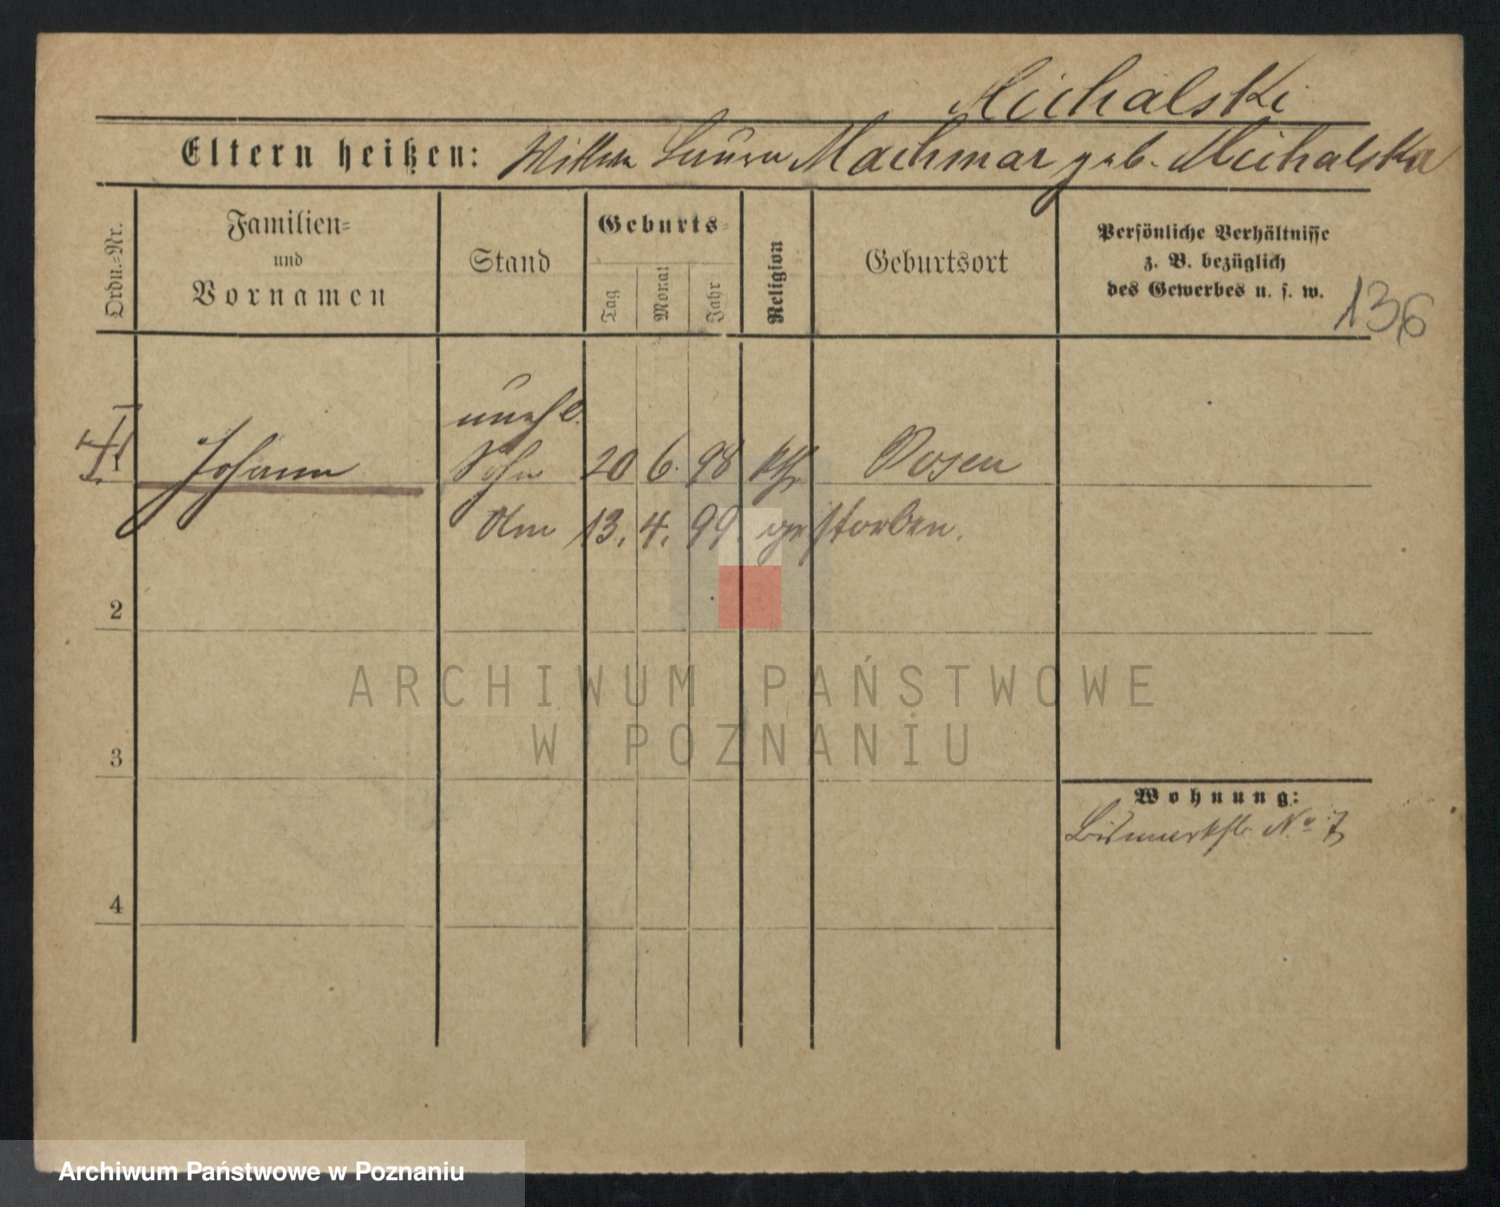 Michalski
Eltern heißen: Wittwe Laura Machmar geb. Michalska
Ordn.-Nr.
Familien-
und
Vornamen
Stand
Geburts-
Tag
Monat
Jahr
Religion
Geburtsort
Persönliche Verhältnisse
z. B. bezüglich
des Gewerbes u. s. w.
136
unehl.
1 Johann Sohn 20 6. 98 kth. Posen
Am 13. 4. 99. gestorben.
2
ARCHIWUM PAŃSTWOWE
W POZNANIU
3
Wohnung:
Bismarckstr. No 7
4
Archiwum Państwowe w Poznaniu